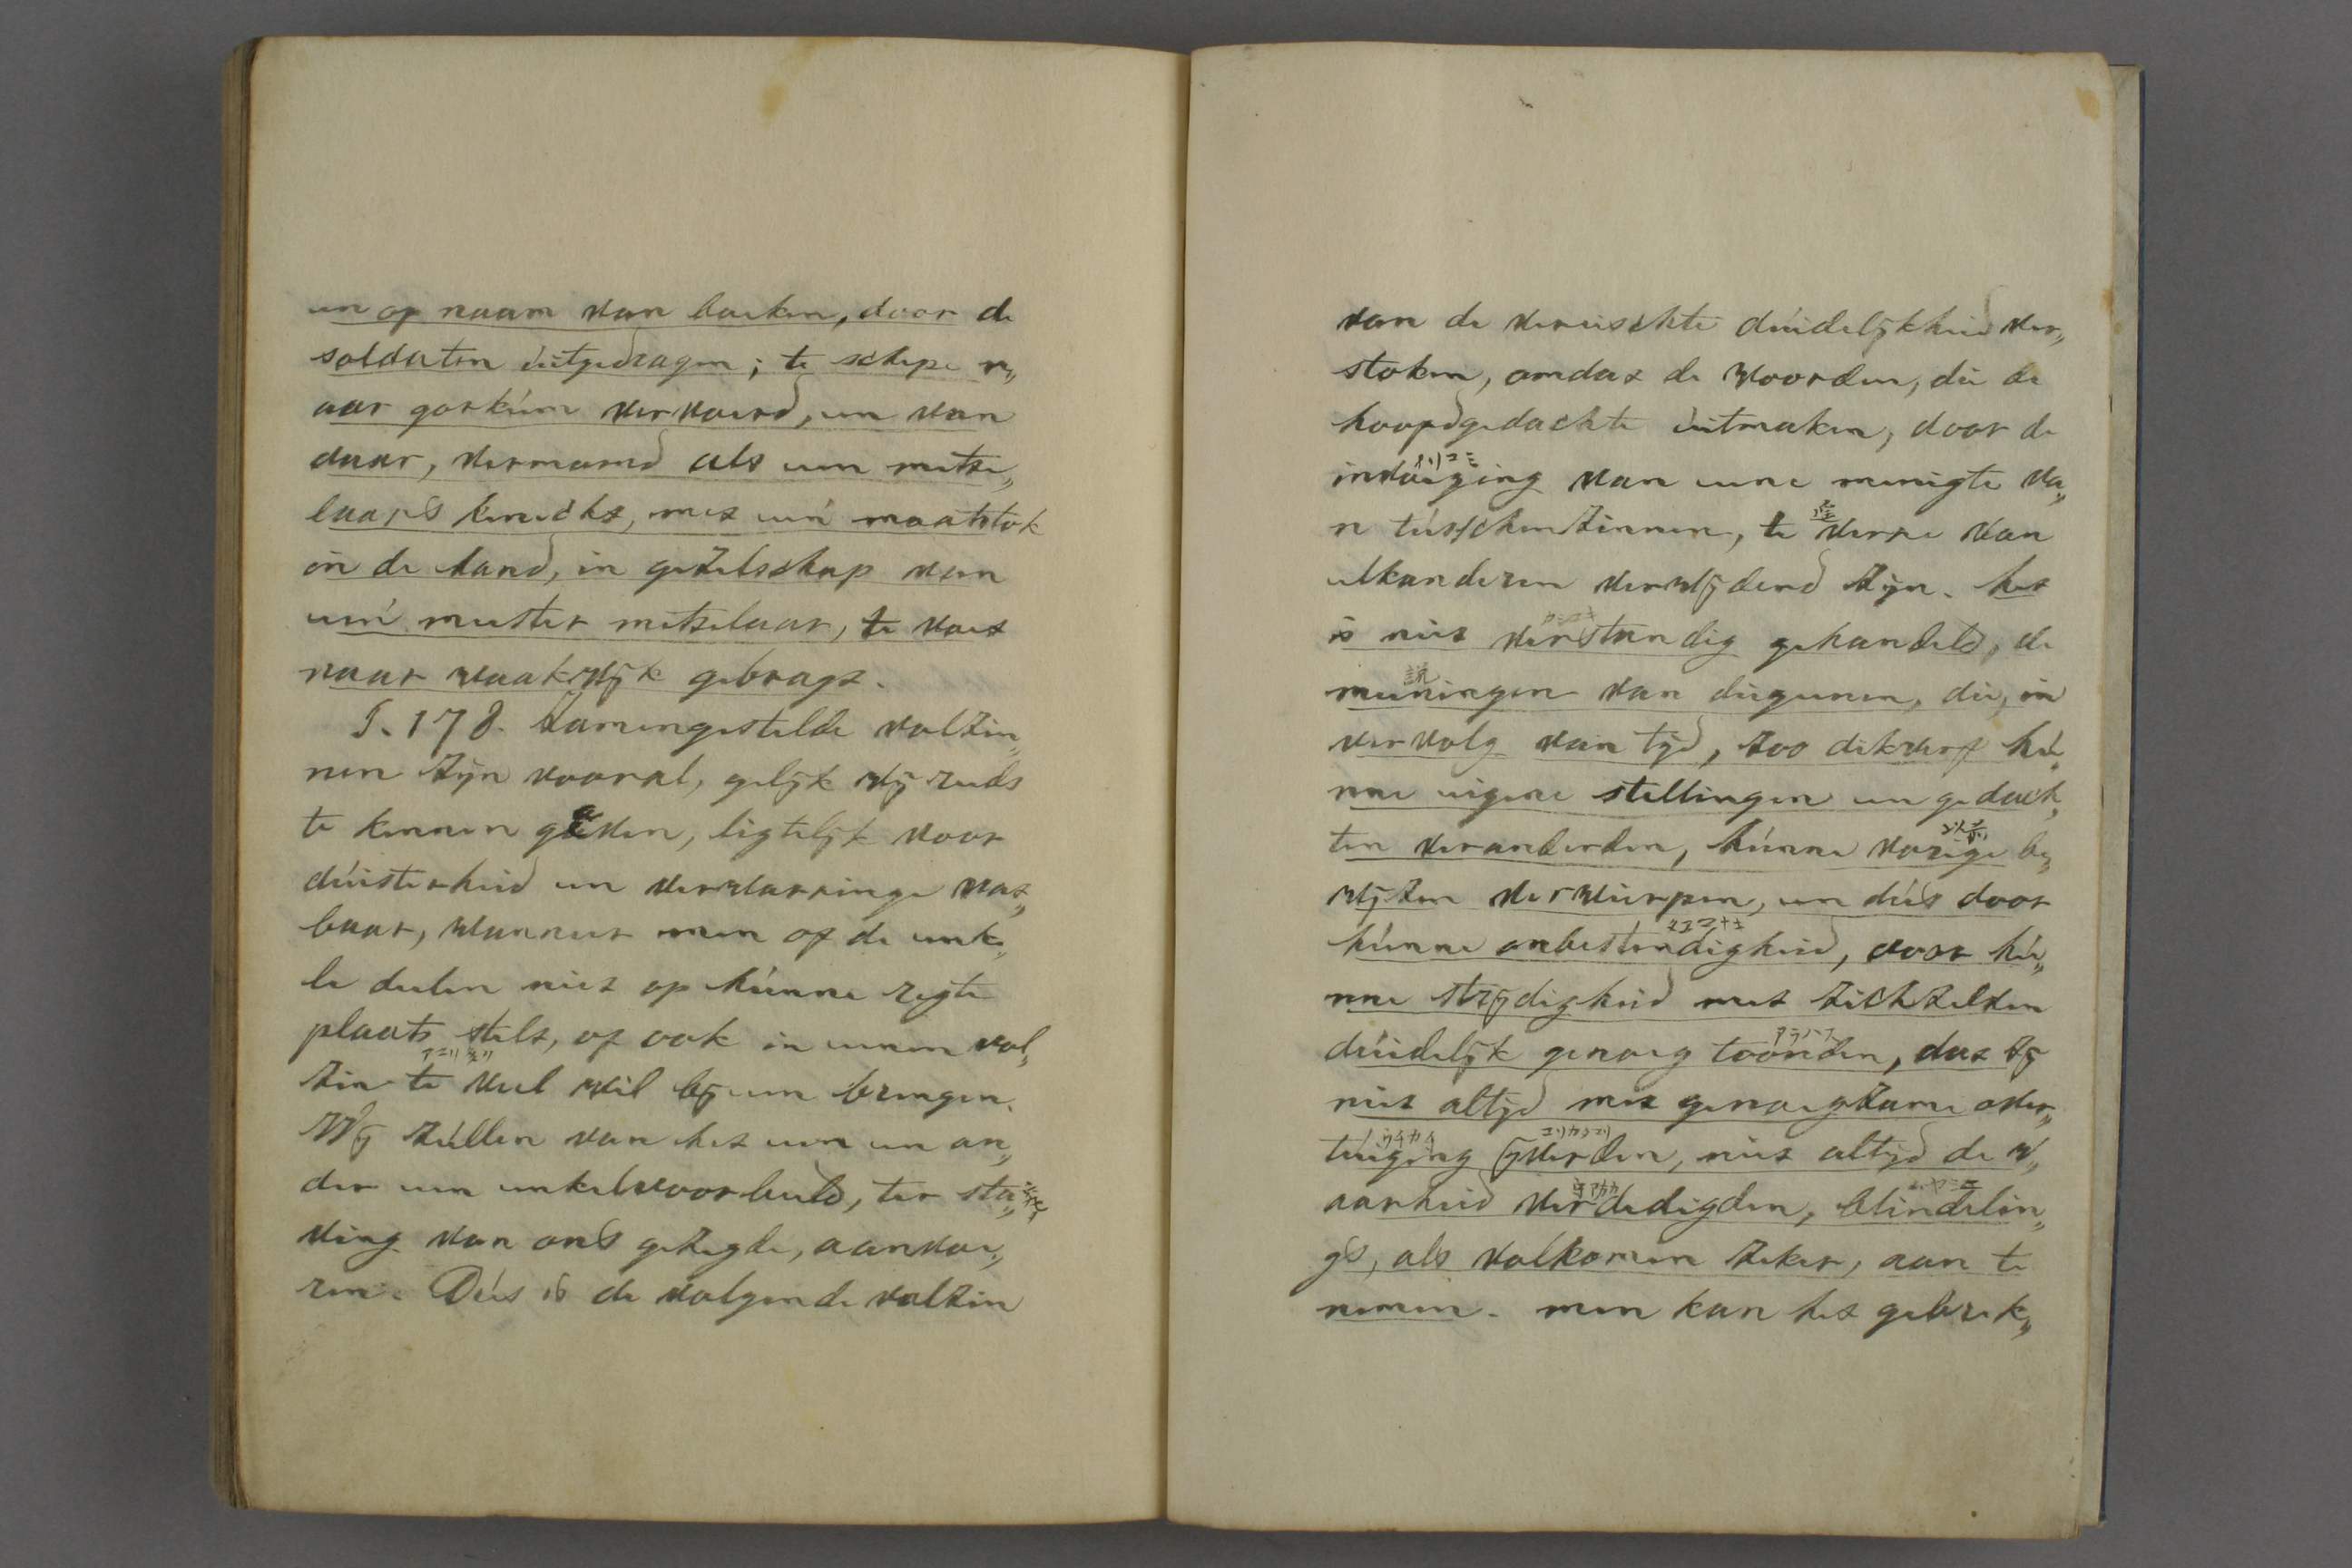 en op naam van boeken, door de
soldaten uitgedragen; te schepe n„
aar gorkúm vervoerd, en van
daar, vermomd als een metse„
laars knecht, met een maatstok
in de hand, in gezelschap van
een meester metselaar, te voet
naar waalwijk gebragt.
§. 178. Zamengestelde volzin„
nen zijn vooral, gelijk wij reeds
te kennen gaven, ligtelijk voor
dúisterheid en verwarringe vat„
baar, wanneer men of de enke„
le deelen niet op húnne regte
plaats stelt, of ook in eenen vol„
zin te veel wil bijeen brengen.
Wij zúllen van het een en an„
der een enkel voorbeeld, ter sta„
ving van ons gezegde, aanvoe„
ren. Dús is de volgende volzin
van de vereischte dúidelijkheid ver„
stoken, omdat de woorden, die de
hoofdgedachte uitmaken, door de
invoeging van eene menigte va„
n tússchenzinnen, te verre van
elkanderen verwijderd zijn. het
is niet verstandig gehandeld, de
meeningen van diegenen, die, in
vervolg van tijd, zoo dikwerf hú„
nne eigene stellingen en gedach„
ten veranderden, húnne vorige be„
wijzen verwierpen, en dús door
húnne onbestendigheid, door hú„
nne strijdigheid met zichzelven
dúidelijk genoeg toonden, dat zij
niet altijd met genoegzame over„
túiging ijverden, niet altijd de w„
aarheid verdedigden, blindelin„
gs, als volkomen zeker, aan te
nemen. men kan het gebrek„